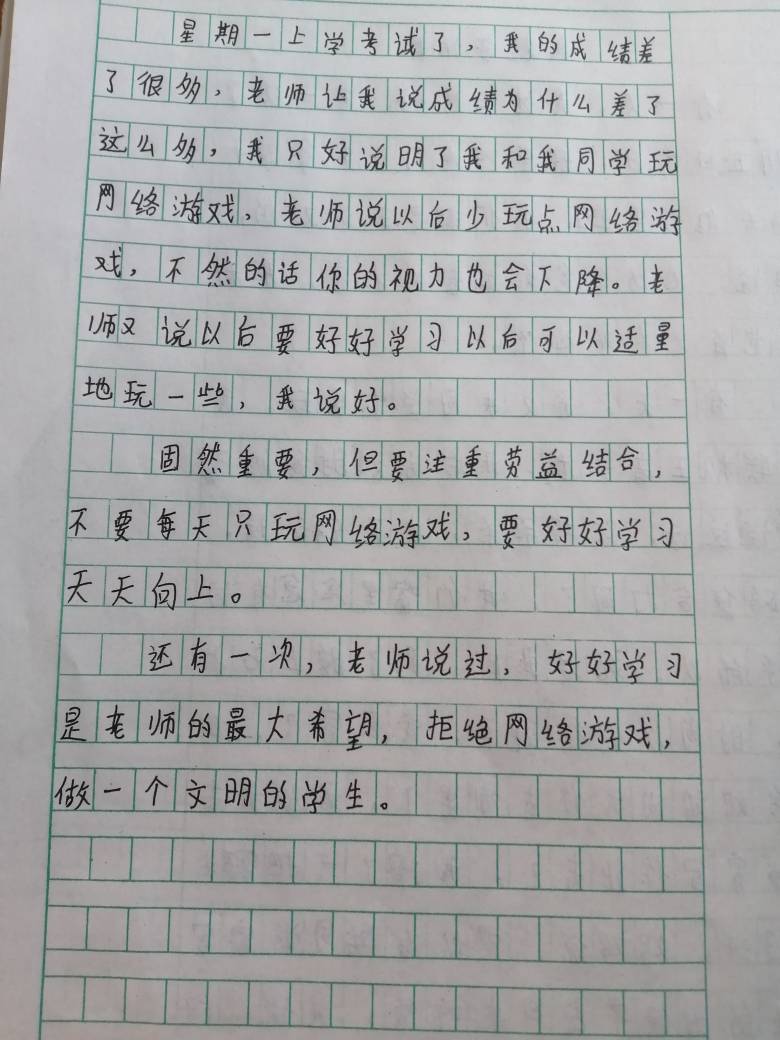 星期一上学考试了，我的成绩差
了很多，老师让我说成绩为什么差了
这么多，我只好说明了我和我同学玩
网络游戏，老师说以后少玩点网络游
戏，不然的话你的视力也会下降。老
师又说以后要好好学习以后可以适量
地玩一些，我说好。
固然重要，但要注重劳益结合，
不要每天只玩网络游戏，要好好学习
天天向上。
还有一次，老师说过，好好学习
是老师的最大希望，拒绝网络游戏，
做一个文明的学生。